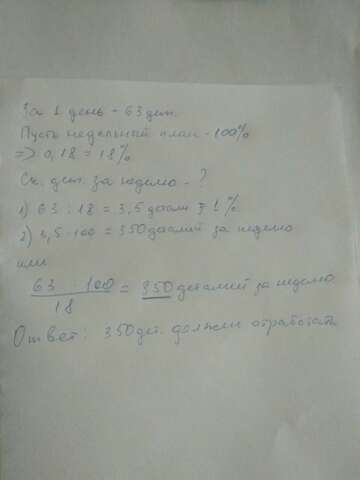 За 1 день - 63 дет.
Пусть недельный план - 100%
=> 0,18 = 18%
Ск. дет. за неделю - ?
1) 63 : 18 = 3,5 детали 1%
2) 3,5 · 100 = 350 деталей за неделю
или
63 · 100
18
= 350 деталей за неделю
Ответ: 350 дет. должны отработать